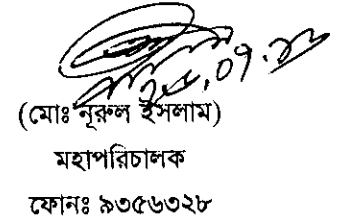 (মোঃ নূরুল ইসলাম)
মহাপরিচালক
ফোনঃ ৯৩৫৬৩২৮